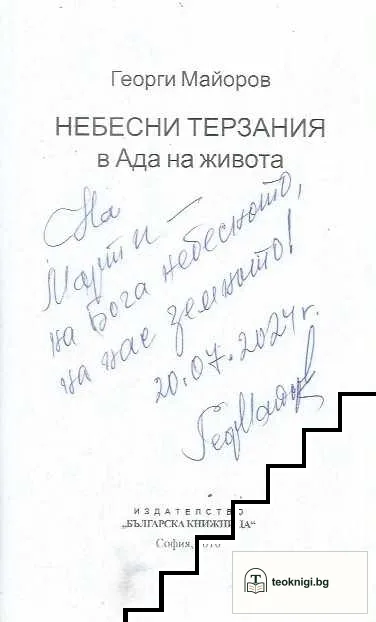 Георги Майоров
НЕБЕСНИ ТЕРЗАНИЯ
в Ада на живота
На
Марти –
на Бога небесното,
на нас земното!
20.07.2024 г.
ИЗДАТЕЛСТВО
„БЪЛГАРСКА
София,
teoknigi.bg